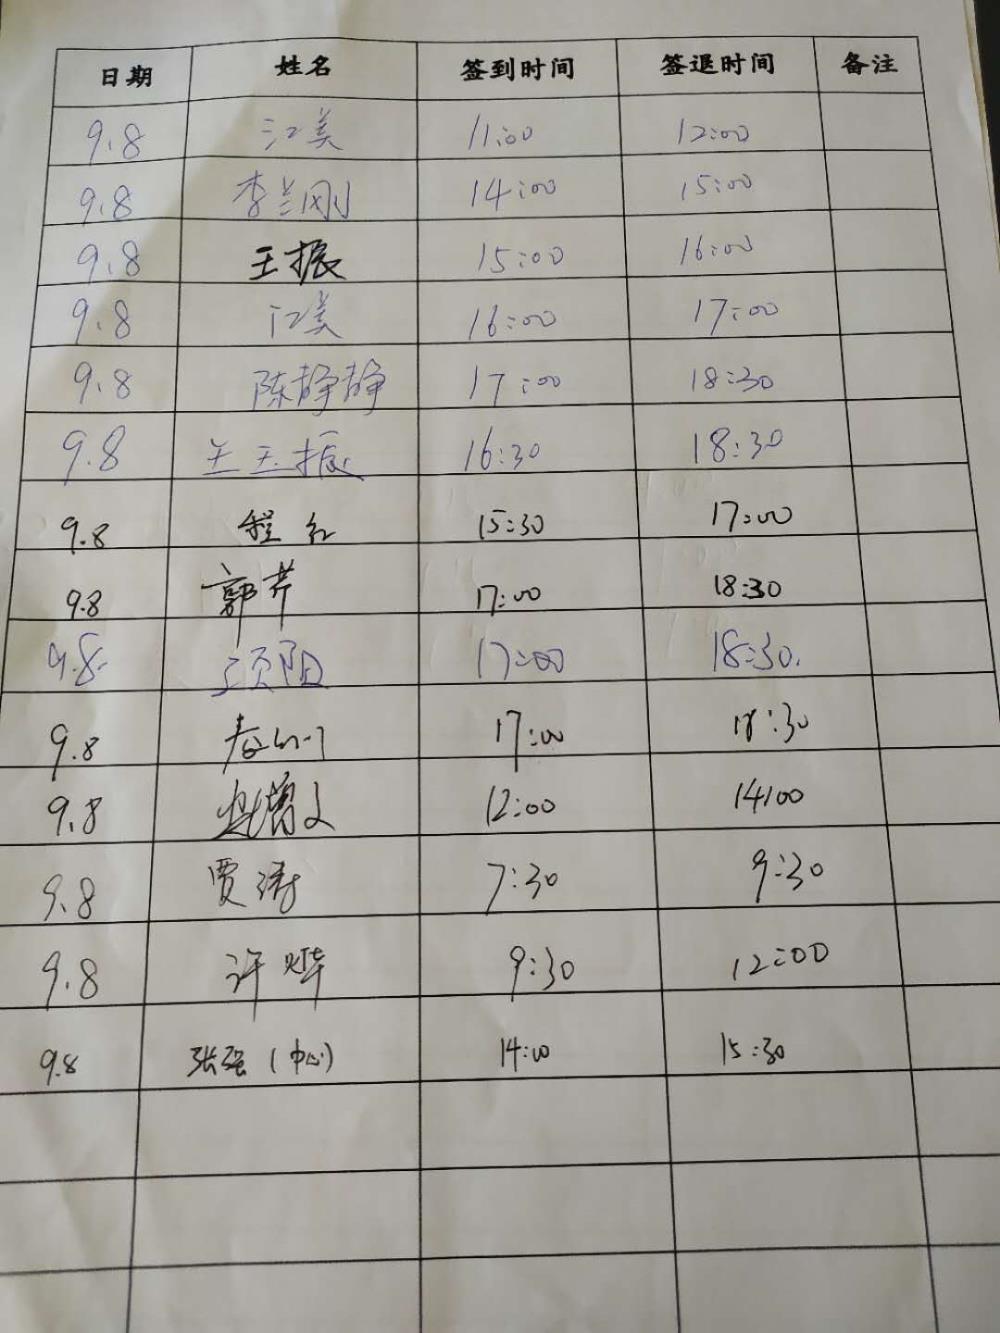 日期 姓名 签到时间 签退时间 备注
9.8 江美 11:00 12:00
9.8 李兰刚 14:00 15:00
9.8 王振 15:00 16:00
9.8 江美 16:00 17:00
9.8 陈静静 17:00 18:30
9.8 王玉振 16:30 18:30
9.8 程红 15:30 17:00
9.8 郭芹 17:00 18:30
9.8. 17:00 18:30.
9.8 17:00 18:30
9.8 12:00 14:00
9.8 贾涛 7:30 9:30
9.8 许晔 9:30 12:00
9.8 张强(中心) 14:00 15:30